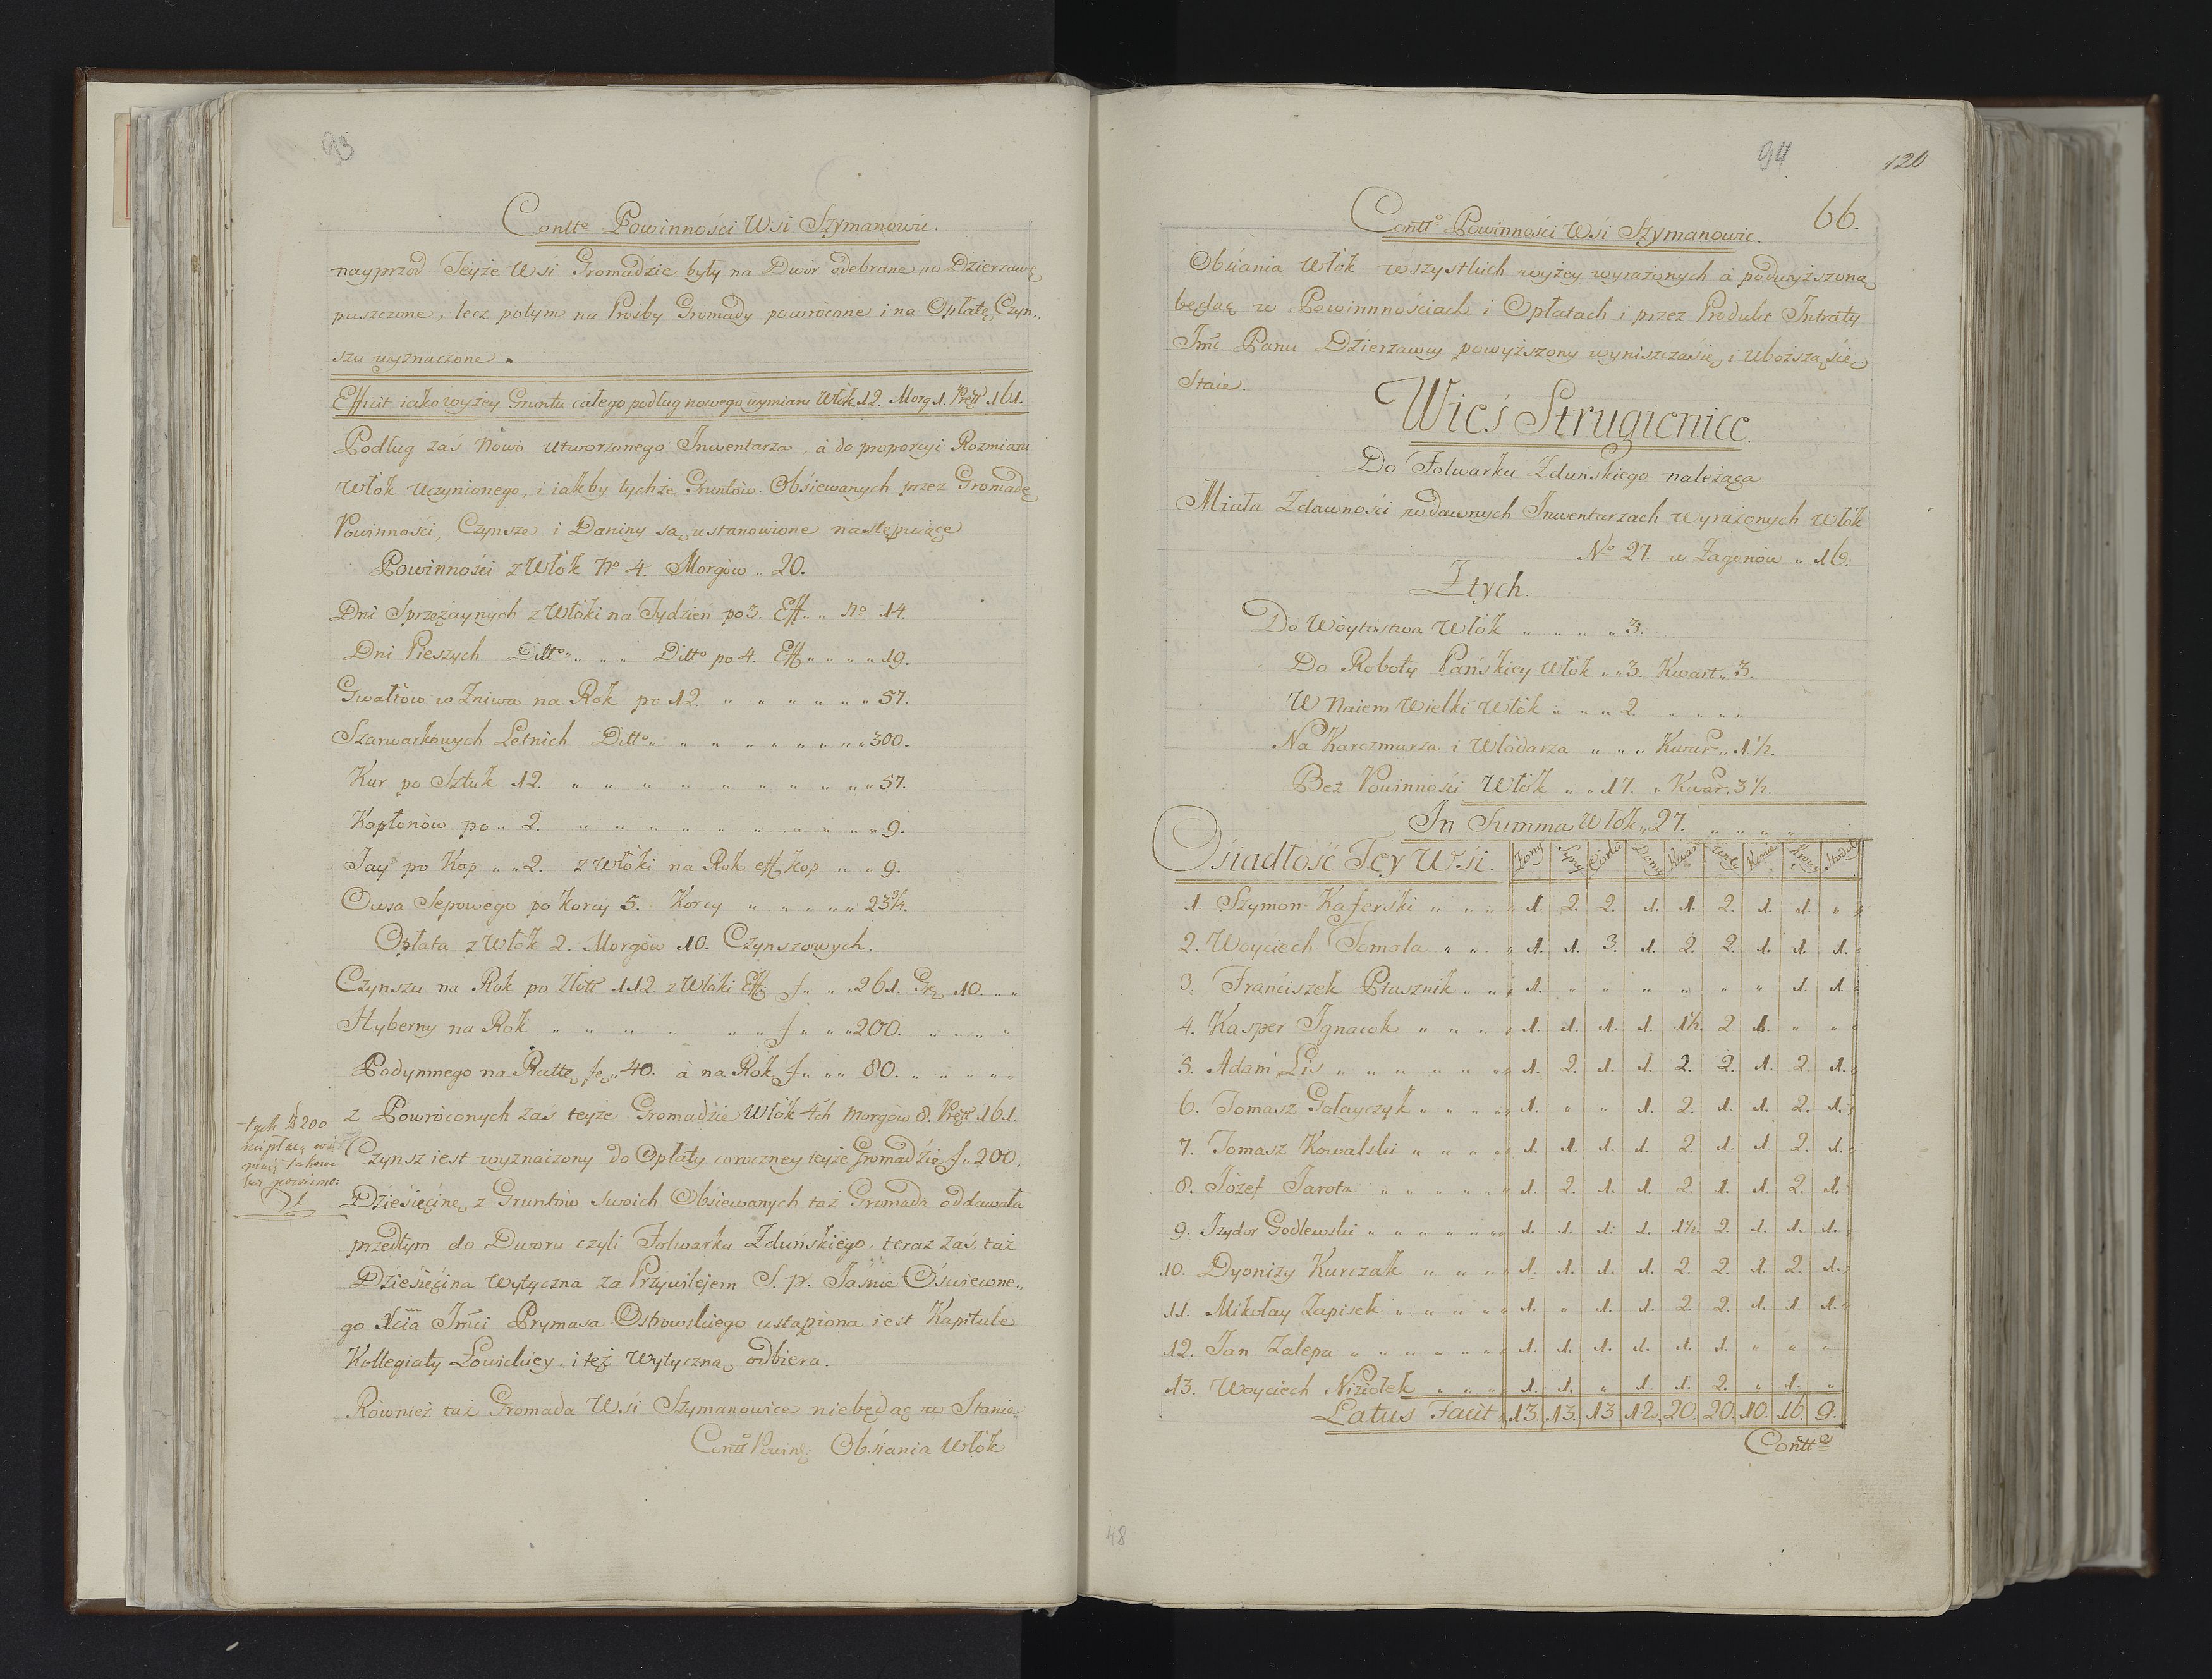 93
Contto Powinności Wsi Szymanowic.
nayprzód Teyże Wsi Gromadzie były na Dwór odebrane, w Dzierzawę
puszczone, lecz potym na Prośby Gromady powrócone i na Opłatę Czyn„
szu wyznaczone.
Efficit iako wyżey Gruntu całego podług nowego wymiaru Włók 12. Morg 1. Pręt 161.
Podług zaś Nowo Utworzonego Inwentarza, á do proporcyi Rozmiaru
Włók Uczynionego, i iakby tychże Gruntów Obsiewanych przez Gromadę
Powinności, Czynsze i Daniny są ustanowione następuiące
Powinności z Włók No 4. Morgów „ 20.
Dni Sprzężaynych z Włóki na Tydzień po 3. Eff „ „ No 14.
Dni Pieszych Ditto „ „ „ Ditto po 4. Eff „ „ „ „ 19.
Gwałtów w Żniwa na Rok po 12. „ „ „ „ „ „ 57.
Szarwarkowych Letnich Ditto „ „ „ „ „ „ „ „ 300.
Kur po Sztuk 12. „ „ „ „ „ „ „ „ „ „ 57.
Kapłonów po „ 2. „ „ „ „ „ „ „ „ „ „ 9.
Jay po Kop „ „ 2. z Włóki na Rok eff kop „ „ 9.
Owsa Sepowego po korcy 5. Korcy „ „ „ „ „ „ 23 3/4.
Opłata z Włók 2. Morgów 10. Czynszowych.
Czynszu na Rok po Złott 112 z Włóki Eff: f „ „ „ 261. Gr 10. „ „
Hyberny na Rok „ „ „ „ „ „ „ f „ „ „ 200. „ „ „ „
Podymnego na Rattę fl „ 40. á na Rok f „ „ „ 80. „ „ „ „ „
z Powróconych zaś teyże Gromadzie Włók 4ch Morgów 8. Pręt 161.
Czynsz iest wyznaczony do Opłaty coroczney teyże Gromadzie f „ 200.
tych 200
Dziesięcinę z Gruntów Swoich Obsiewanych taż Gromada oddawała
przedtym do Dworu czyli Folwarku Zduńskiego, teraz zaś, taż
Dziesięcina Wytyczna za Przywilejem S. p. Jaśnie Oświecone„
go Xcia Jmci Prymasa Ostrowskiego ustąpiona iest Kapitule
Kollegiaty Łowickiey i też Wytyczną odbiera.
Również taż Gromada Wsi Szymanowice niebędąc w Stanie
Obsiania Włók
94
120
66.
Contto Powinności Wsi Szymanowic.
Obsiania Włók wszystkich wyżey wyrażonych á podwyższoną
będąc w Powinnnościach, i Opłatach i przez Produkt Intraty
Jmć Panu Dzierzawcy powyższony wyniszcza się, i Uboższą się
Staie.
Wieś Strugienice.
Do Folwarku Zduńskiego należąca.
Miała Zdawności w dawnych Inwentarzach Wyrażonych Włók
No 27. w Zagonów „ 16.
Z tych.
Do Wóytostwa Włók „ „ „ „ 3.
Do Roboty Pańskiey Włók „ „ 3. Kwart „ 3.
W Naiem Wielki Włók „ „ „ 2 „ „ „ „
Na Karczmarza i Włódarza „ „ „ Kwar „ 1 1/2.
Bez Powinności Włók „ „ 17. „ Kwar. 3 1/2.
In Summa Włok „ 27. „ „ „ „
Osiadłość Tey Wsi. Żony Syny Córki Domy Kwar Woły Konie Krowy Stodoły
1. Szymon Kaferski „ „ „ 1. 2. 2. 1. 1. 2. 1. 1. „
2. Woyciech Tomala „ „ „ 1. 1. 3. 1. 2. 2. 1. 1. 1.
3. Franciszek Ptasznik „ „ 1. „ „ „ „ „ „ 1. 1.
4. Kasper Ignacok „ „ „ „ 1. 1. 1. 1. 1 1/2. 2. 1. „ „
5. Adam Lis „ „ „ „ „ „ 1. 2. 1. 1. 2. 2. 1. 2. 1.
6. Tomasz Gołayczyk „ „ „ „ 1. „ „ 1. 2. 1. 1. 2. 1.
7. Tomasz Kowalski „ „ „ „ 1. 1. 1. 1. 2. 1. 1. 2. 1.
8. Józef Jarota „ „ „ „ „ „ 1. 2. 1. 1. 2. 1. 1. 2. 1.
9. Izydor Godlewski „ „ „ „ „ 1. 1. 1. 1. 1 1/2. 2. 1. 1. 1.
10. Dyonizy Kurczak „ „ „ „ 1. 1. 1. 1. 2. 2. 1. 2. 1.
11. Mikołay Zapisek „ „ „ „ 1. „ 1. 1. 2. 2. 1. 1. 1.
12. Jan Zalepa „ „ „ „ „ „ 1. 1. 1. 1. 1. 1. „ „ „
13. Woyciech Niziołek „ „ „ 1. 1. „ 1. 1. 2. „ 1. „
Latus Facit 13. 13. 13. 12. 20. 20. 10. 16. 9.
Contto
48